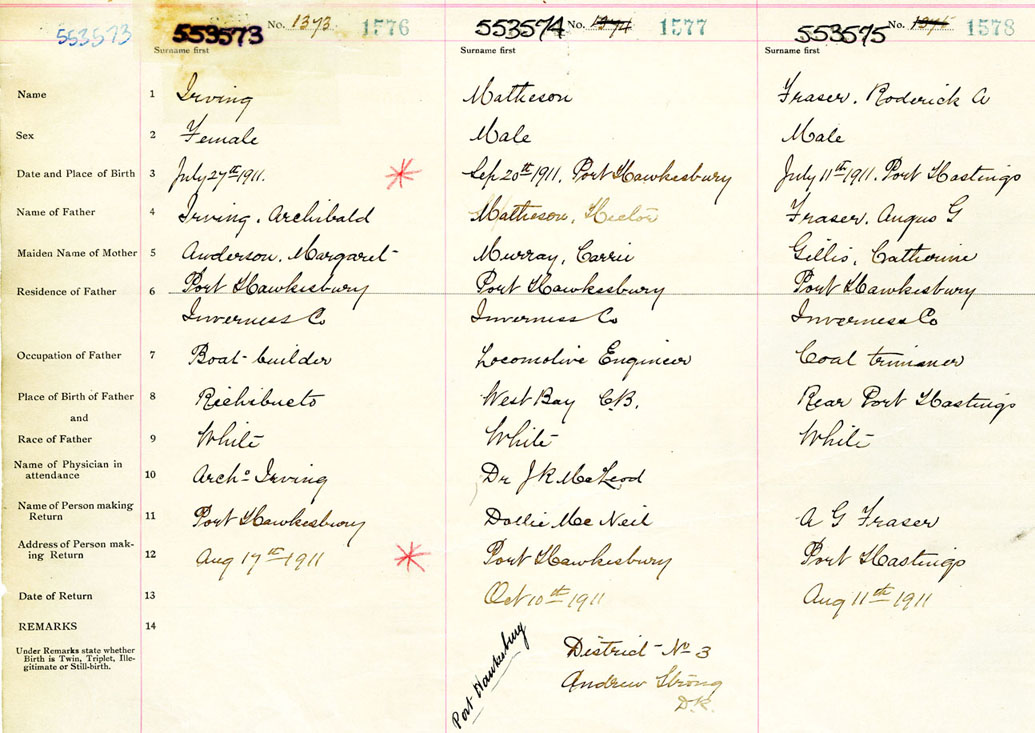 553573 553573 No. 1373 1576 553574 No. 1374 1577 553575 No. 1375 1578
Surname first Surname first Surname first
Name 1 Irving Matheson Fraser, Roderick A
Sex 2 Female Male Male
Date and Place of Birth 3 July 27th 1911. Sep 20th 1911, Port Hawkesbury July 11th 1911. Port Hastings
Name of Father 4 Irving, Archibald Matheson, Hector Fraser, Angus G
Maiden Name of Mother 5 Anderson, Margaret Murray, Carrie Gillis, Catherine
Residence of Father 6 Port Hawkesbury Port Hawkesbury Port Hawkesbury
Inverness Co Inverness Co Inverness Co
Occupation of Father 7 Boat-builder Locomotive Engineer Coal trimmer
Place of Birth of Father 8 Richibucto West Bay C.B. Rear Port Hastings
and
Race of Father 9 White White White
Name of Physician in
attendance 10 Archo Irving Dr J K McLeod
Name of Person making
Return 11 Port Hawkesbury Dollie Mc Neil A G Fraser
Address of Person mak-
ing Return 12 Aug 17th 1911 Port Hawkesbury Port Hastings
Date of Return 13 Oct 10th 1911 Aug 11th 1911
REMARKS 14
Under Remarks state whether
Birth is Twin, Triplet, Ille-
gitimate or Still-birth.
Port Hawkesbury
District No 3
Andrew Strong
D.R.